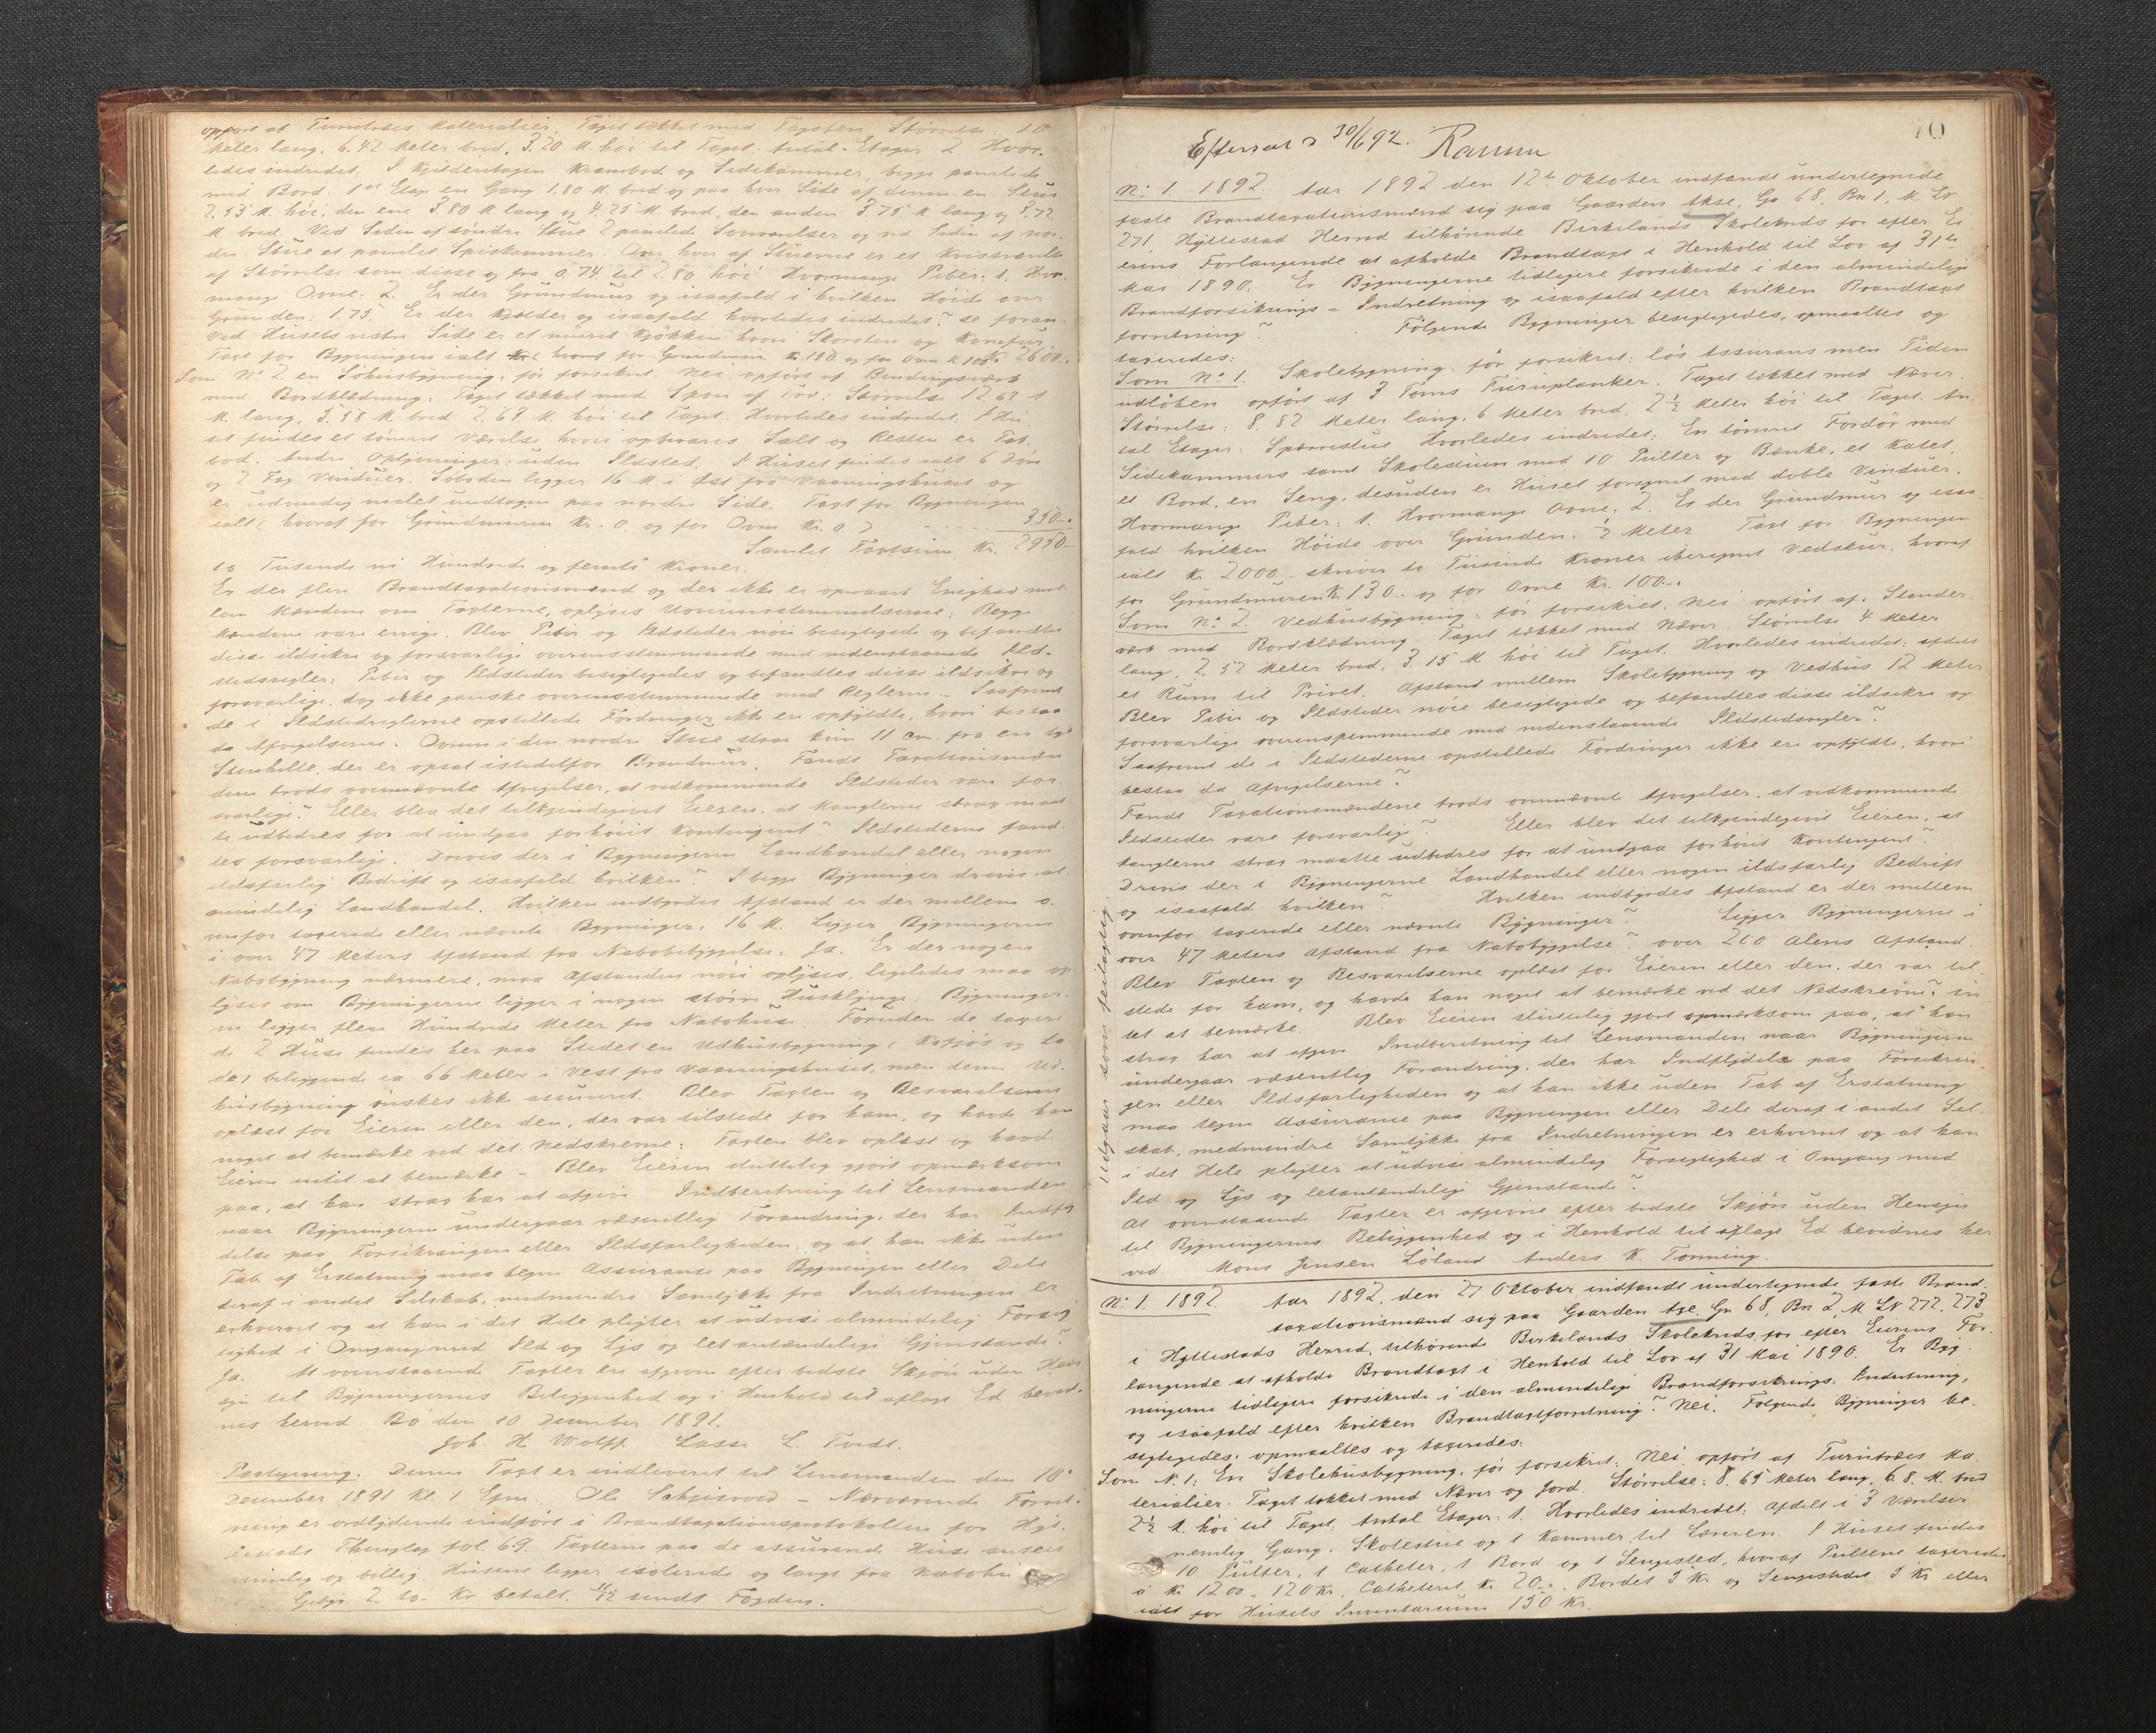 opført af Furutræes Materialier. Taget tækket med Tagsten. Størrelse: 10
Meter lang, 6.42 Meter bred, 3.20 M. høi til Taget. Antal Etager 2. Hvor-
ledes indredet. I Kjelderetagen Krambod og Sidekammer, begge panelede
med Bord. 1ste Etage en Gang 1,80 M. bred og paa hver Side af denne en Stue
2,53 M. høi, den ene 3.80 M lang og 4.25 M. bred, den anden 3.75 M lang og 3.72
M. bred. Ved Siden af søndre Stue 2 panelede Soveværelser og ved Siden af nor-
dre Stue et panelet Spiskammer. Over hver af Stuerne er et Kvistværelse
af Størrelse som disse og fra 0.74 til 2.80 høi. Hvormange Piber: 1. Hvor-
mange Ovne: 2. Er der Grundmur og isaafald i hvilken Høide over
Grunden: 1.75. Er der Kjelder og isaafald hvorledes indredet? se foran.
Ved Husets vestre Side er et muret Kjøkken hvori Skorsten og Komfur.
Taxt for Bygningen ialt (hvoraf for Grundmuren K. 150 og for Ovne K 100) Kr. 2600.-
Som No 2 en Søhusbygning, før forsikret. Nei, opført af Bindingsværk
med Bordklædning. Taget tækket med Spon af Træ. Størrelse 12.63
M. lang, 3.58 M. bred 2.63 M. høi til Taget. Hvorledes indredet. I Hu-
set findes et tømret Værelse hvori opbevares Salt og Resten er Tøt-
bod. Andre Oplysninger: uden Ildsted. I Huset findes ialt 6 Døre
og 2 Fag Vinduer. Søboden ligger 16 M. i Øst fra Vaaningshuset og
er udvendig malet undtagen paa nordre Side. Taxt for Bygningen
ialt (hvoraf for Grundmuren Kr. 0 og for Ovne Kr. 0) 350-.
Samlet Taxtsum Kr. 2950-
to Tusende ni Hundrede og femti Kroner.
Er der flere Brandtaxationsmænd og der ikke er opnaaet Enighed mel-
lem Mændene om Taxterne, oplyses Uoverensstemmelserne: Begge
Mændene vare enige. Blev Piber og Ildsteder nøie besigtigede og befandtes
disse ildsikre og forsvarlige overensstemmende med nedenstaaende Ild-
stedsregler: Piber og Ildsteder besigtigedes og befandtes disse ildsikre og
forsvarlige, dog ikke ganske overensstemmende med Reglerne. Saafremt
de i Ildstedreglerne opstillede Fordringer ikke ere opfyldte, hvori bestaa
da Afvigelserne. Ovnen i den nordre Stue staar kun 11 cm. fra en
Stenhelle, der er opsat istedetfor Brandmur. Fandt Taxationsmæn-
dene trods ovennævnte Afvigelser, at vedkommende Ildsteder vare for-
svarlige? Eller blev det tilkjendegivet Eieren, at Manglerne strax maat-
te udbedres for at undgaa forhøiet Kontingent? Ildstederne fand-
tes forsvarlige. Drives der i Bygningerne Landhandel eller nogen
ildsfarlig Bedrift og isaafald hvilken? I begge Bygninger drives al-
mindelig Landhandel. Hvilken indbyrdes Afstand er der mellem o-
venfor taxerede eller nævnte Bygninger: 16 M. Ligger Bygningerne
i over 47 Meters Afstand fra Nabobebyggelse: Ja. Er der nogen
Nabobygning nærmere, maa Afstanden nøie oplyses, ligeledes maa op-
lyses om Bygningerne ligger i nogen større Husklynge: Bygninger-
ne ligger flere Hundrede Meter fra Nabohuse. Foruden de taxere-
de 2 Huse findes her paa Stedet en Udhusbygning (Kofjøs og La-
de) beliggende ca 66 Meter i Vest fra Vaaningshuset, men denne Ud-
husbygning ønskes ikke assureret. Blev Taxten og Besvarelserne
oplæst for Eieren eller den, der var tilstede for ham, og havde han
noget at bemærke ved det Nedskrevne: Taxten blev oplæst og havde
Eieren intet at bemærke - Blev Eieren sluttelig gjort opmærksom
paa, at han strax har at afgive Indberetning til Lensmanden
naar Bygningerne undergaar væsentlig Forandring, der har Indfly-
delse paa Forsikringen eller Ildsfarligheden, og at han ikke uden
Tab af Erstatning maa tegne Assurance paa Bygningen eller Dele
deraf i andet Selskab, medmindre Samtykke fra Indretningen er
erhvervet og at han i det Hele pligter at udvise almindelig Forsig-
tighed i Omgang med Ild og Lys og letantændelige Gjenstande?
Ja. At ovenstaaende Taxter ere afgivne efter bedste Skjøn uden Hen-
syn til Bygningernes Beliggenhed og i Henhold til aflagt Ed bevid-
nes herved Bø den 10 December 1891.
Joh. H. Wolff Lasse L. Tvedt.
Paategning. Denne Taxt er indleveret til Lensmanden den 10
December 1891 Kl. 1 Efm. Nærværende Forret-
ning er ordlydende indført i Brandtaxationsprotokollen for Hyl-
lestads Thinglag fol. 69. Taxterne paa de assurerede Huse ansees
rimelig og billig. Husene ligger isolerede og langt fra Nabohu
Gebyr 2 to Kr betalt. sendt Fogden.
70
Efterseet 30/6 92. Ramm
No 1. 1892. Aar 1892 den 12te Oktober indfandt undertegnede
faste Brandtaxationsmænd sig paa Gaarden Akse, Gn 68, Bn 1, M. Lr
271, Hyllestad Herred tilhørende Birkelands Skolekreds for efter Ei-
erens Forlangende at afholde Brandtaxt i Henhold til Lov af 31te
Mai 1890. Er Bygningerne tidligere forsikrede i den almindelige
Brandforsikrings-Indretning og isaafald efter hvilken Brandtaxt
forretning? Følgende Bygninger besigtigedes, opmaaltes og
taxeredes:
Som No 1. Skolebygning, før forsikret: løs Assurans men Tiden
udløben opført af 3 Toms Furuplanker. Taget tækket med Næver.
Størrelse: 8.82 Meter lang, 6 Meter bred, 2½ Meter høi til Taget. An-
tal Etager: Spærrestue Hvorledes indredet: En tømret Fordør med
Sidekammers samt Skolestuen med 10 Pulter og Bænke, et Katet,
et Bord, en Seng, desuden er Huset forsynet med doble Vinduer.
Hvormange Piber: 1. Hvormange Ovne: 2. Er der Grundmur og isaa-
fald hvilken Høide over Grunden: ½ Meter Taxt for Bygningen
ialt Kr. 2000- skriver to Tusinde Kroner iberegnet Vedskur, hvoraf
for Grundmuren Kr. 130.- og for Ovne Kr. 100.-.
Som No 2. Vedhusbygning, før forsikret, Nei opført af: Stander-
værk med Bordklædning Taget tækket med Næver. Størrelse 4 Meter
lang, 2,52 Meter bred, 3.15 M høi til Taget. Hvorledes indredet: afdelt
et Rum til Privet. Afstand mellem Skolebygning og Vedhus 12 Meter
Blev Piber og Ildsteder nøie besigtigede og befandtes disse ildsikre og
forsvarlige overensstemmende med nedenstaaende Ildstedsregler?
Saafremt de i Ildstederne opstillede Fordringer ikke ere opfyldte, hvori
bestaa da Afvigelserne?
Fandt Taxationsmændene trods ovennævnte Afvigelser, at vedkommende
Ildsteder vare forsvarlige? Eller blev det tilkjendegivet Eieren, at
Manglerne strax maatte udbedres for at undgaa forhøiet Kontingent?
Drives der i Bygningerne Landhandel eller nogen ildsfarlig Bedrift
og isaafald hvilken? Hvilken indbyrdes Afstand er der mellem
ovenfor taxerede eller nævnte Bygninger? Ligger Bygningerne i
over 47 Meters Afstand fra Nabobyggelse? over 200 Alens Afstand.
Blev Taxten og Besvarelserne oplæst for Eieren eller den, der var til-
stede for ham, og havde han noget at bemærke ved det Nedskrevne? in-
tet at bemærke. Blev Eieren sluttelig gjort opmærksom paa, at han
strax har at afgive Indberetning til Lensmanden naar Bygningerne
undergaar væsentlig Forandring, der har Indflydelse paa Forsikrin-
gen eller Ildsfarligheden og at han ikke uden Tab af Erstatning
maa tegne Assurance paa Bygningen eller Dele deraf i andet Sel-
skab, medmindre Samtykke fra Indretningen er erhvervet og at han
i det Hele pligter at udvise almindelig Forsigtighed i Omgang med
Ild og Lys og letantændelige Gjenstande?
At ovenstaaende Taxter er afgivne efter bedste Skjøn uden Hensyn
til Bygningernes Beliggenhed og i Henhold til aflagt Ed bevidnes her
ved Mons Jensen Løland Anders K. Tonning.
Udgaar som feilagtig.
No 1. 1892. Aar 1892, den 27 Oktober indfandt undertegnede faste Brand-
taxationsmænd sig paa Gaarden Axe, Gn 68, Bn 2, M. Lr 272, 273
i Hyllestads Herred, tilhørende Birkelands Skolekreds for efter Eierens For-
langende at afholde Brandtaxt i Henhold til Lov af 31 Mai 1890. Er Byg-
ningerne tidligere forsikrede i den almindelige Brandforsikrings-Indretning,
og isaafald efter hvilken Brandtaxtforretning? Nei. Følgende Bygninger be-
sigtigedes, opmaaltes og taxeredes:
Som No 1: En Skolehusbygning, før forsikret: Nei, opført af Furutræes Ma-
terialier. Taget tækket med Næver og Jord. Størrelse: 8.65 Meter lang, 6.8. M. bred
2½ M. høi til Taget. Antal Etager: 1. Hvorledes indredet: Afdelt i 3 Værelser
nemlig Gang, Skolestue og 1 Kammer til Læreren. I Huset findes
10 Pulter, 1 Catheter, 1 Bord og 1 Sengested, hvoraf Pultene taxeredes
a Kr 12 00 - 120 Kr, Catheteret Kr 20.-, Bordet 5 Kr og Sengestedet 5 Kr eller
ialt for Husets Inventarium 150 Kr.